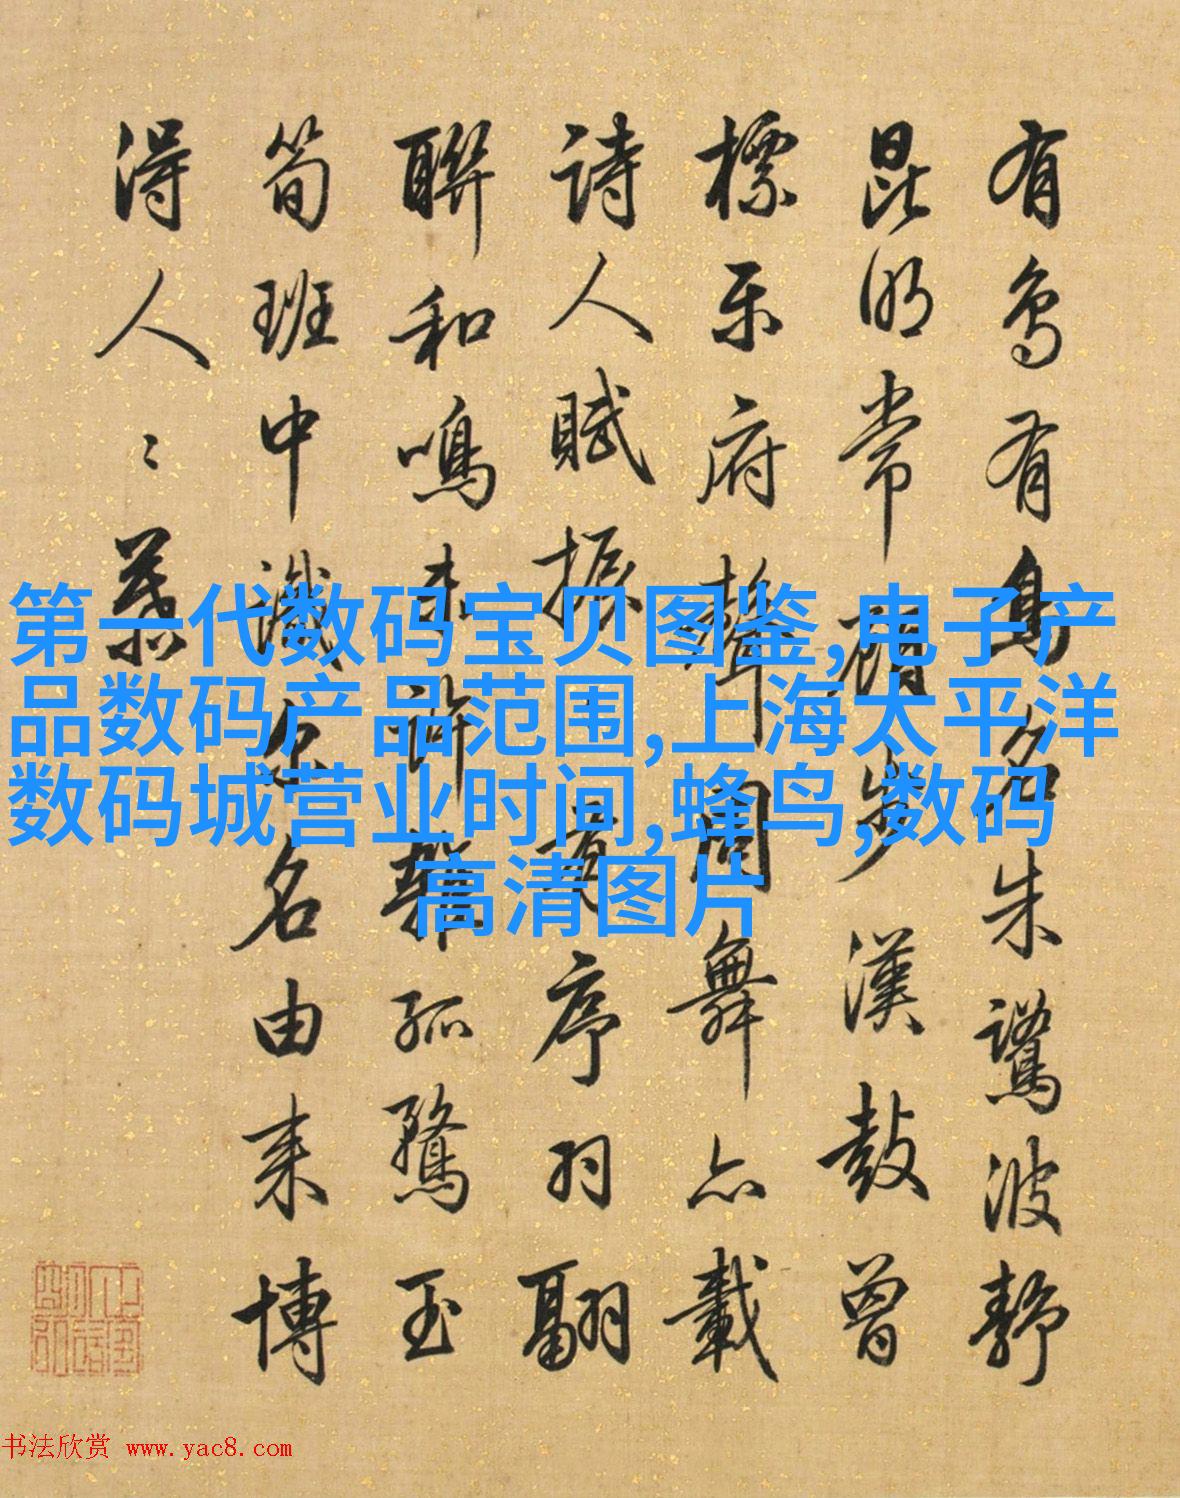 有鳥有鳥名朱鷺波静
昆明常顧步漢鼓曾
標樂府聲聞舞亦載
詩人賦振序羽翮
聯和鳴未許雜孤鶩玉
筍班中識名由来博
得人〻慕
第一代数码宝贝图鉴,电子产
品数码产品范围,上海太平洋
数码城营业时间,蜂鸟,数码
高清图片
书法欣赏 www.yac8.com